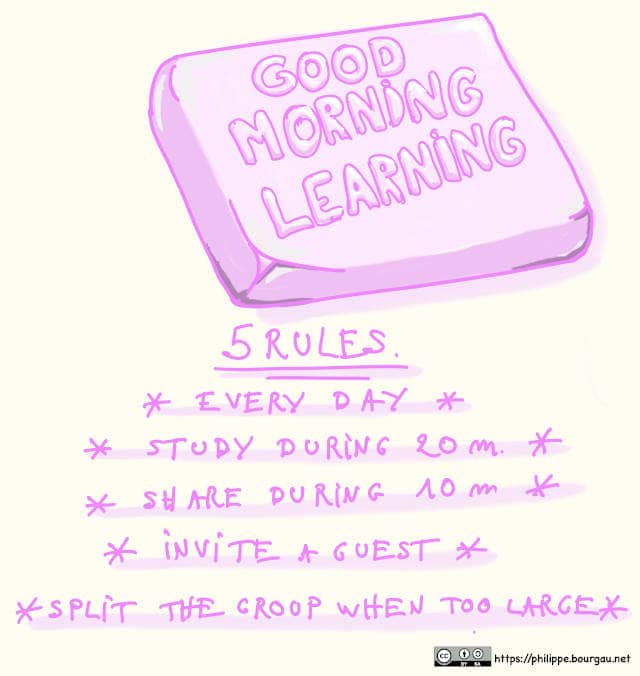 GOOD
MORNING
LEARNING
5 RULES.
* EVERY DAY *
* STUDY DURING 20 m. *
* SHARE DURING 10 m *
* INVITE A GUEST *
* SPLIT THE GROUP WHEN TOO LARGE *
cc BY SA https://philippe.bourgau.net